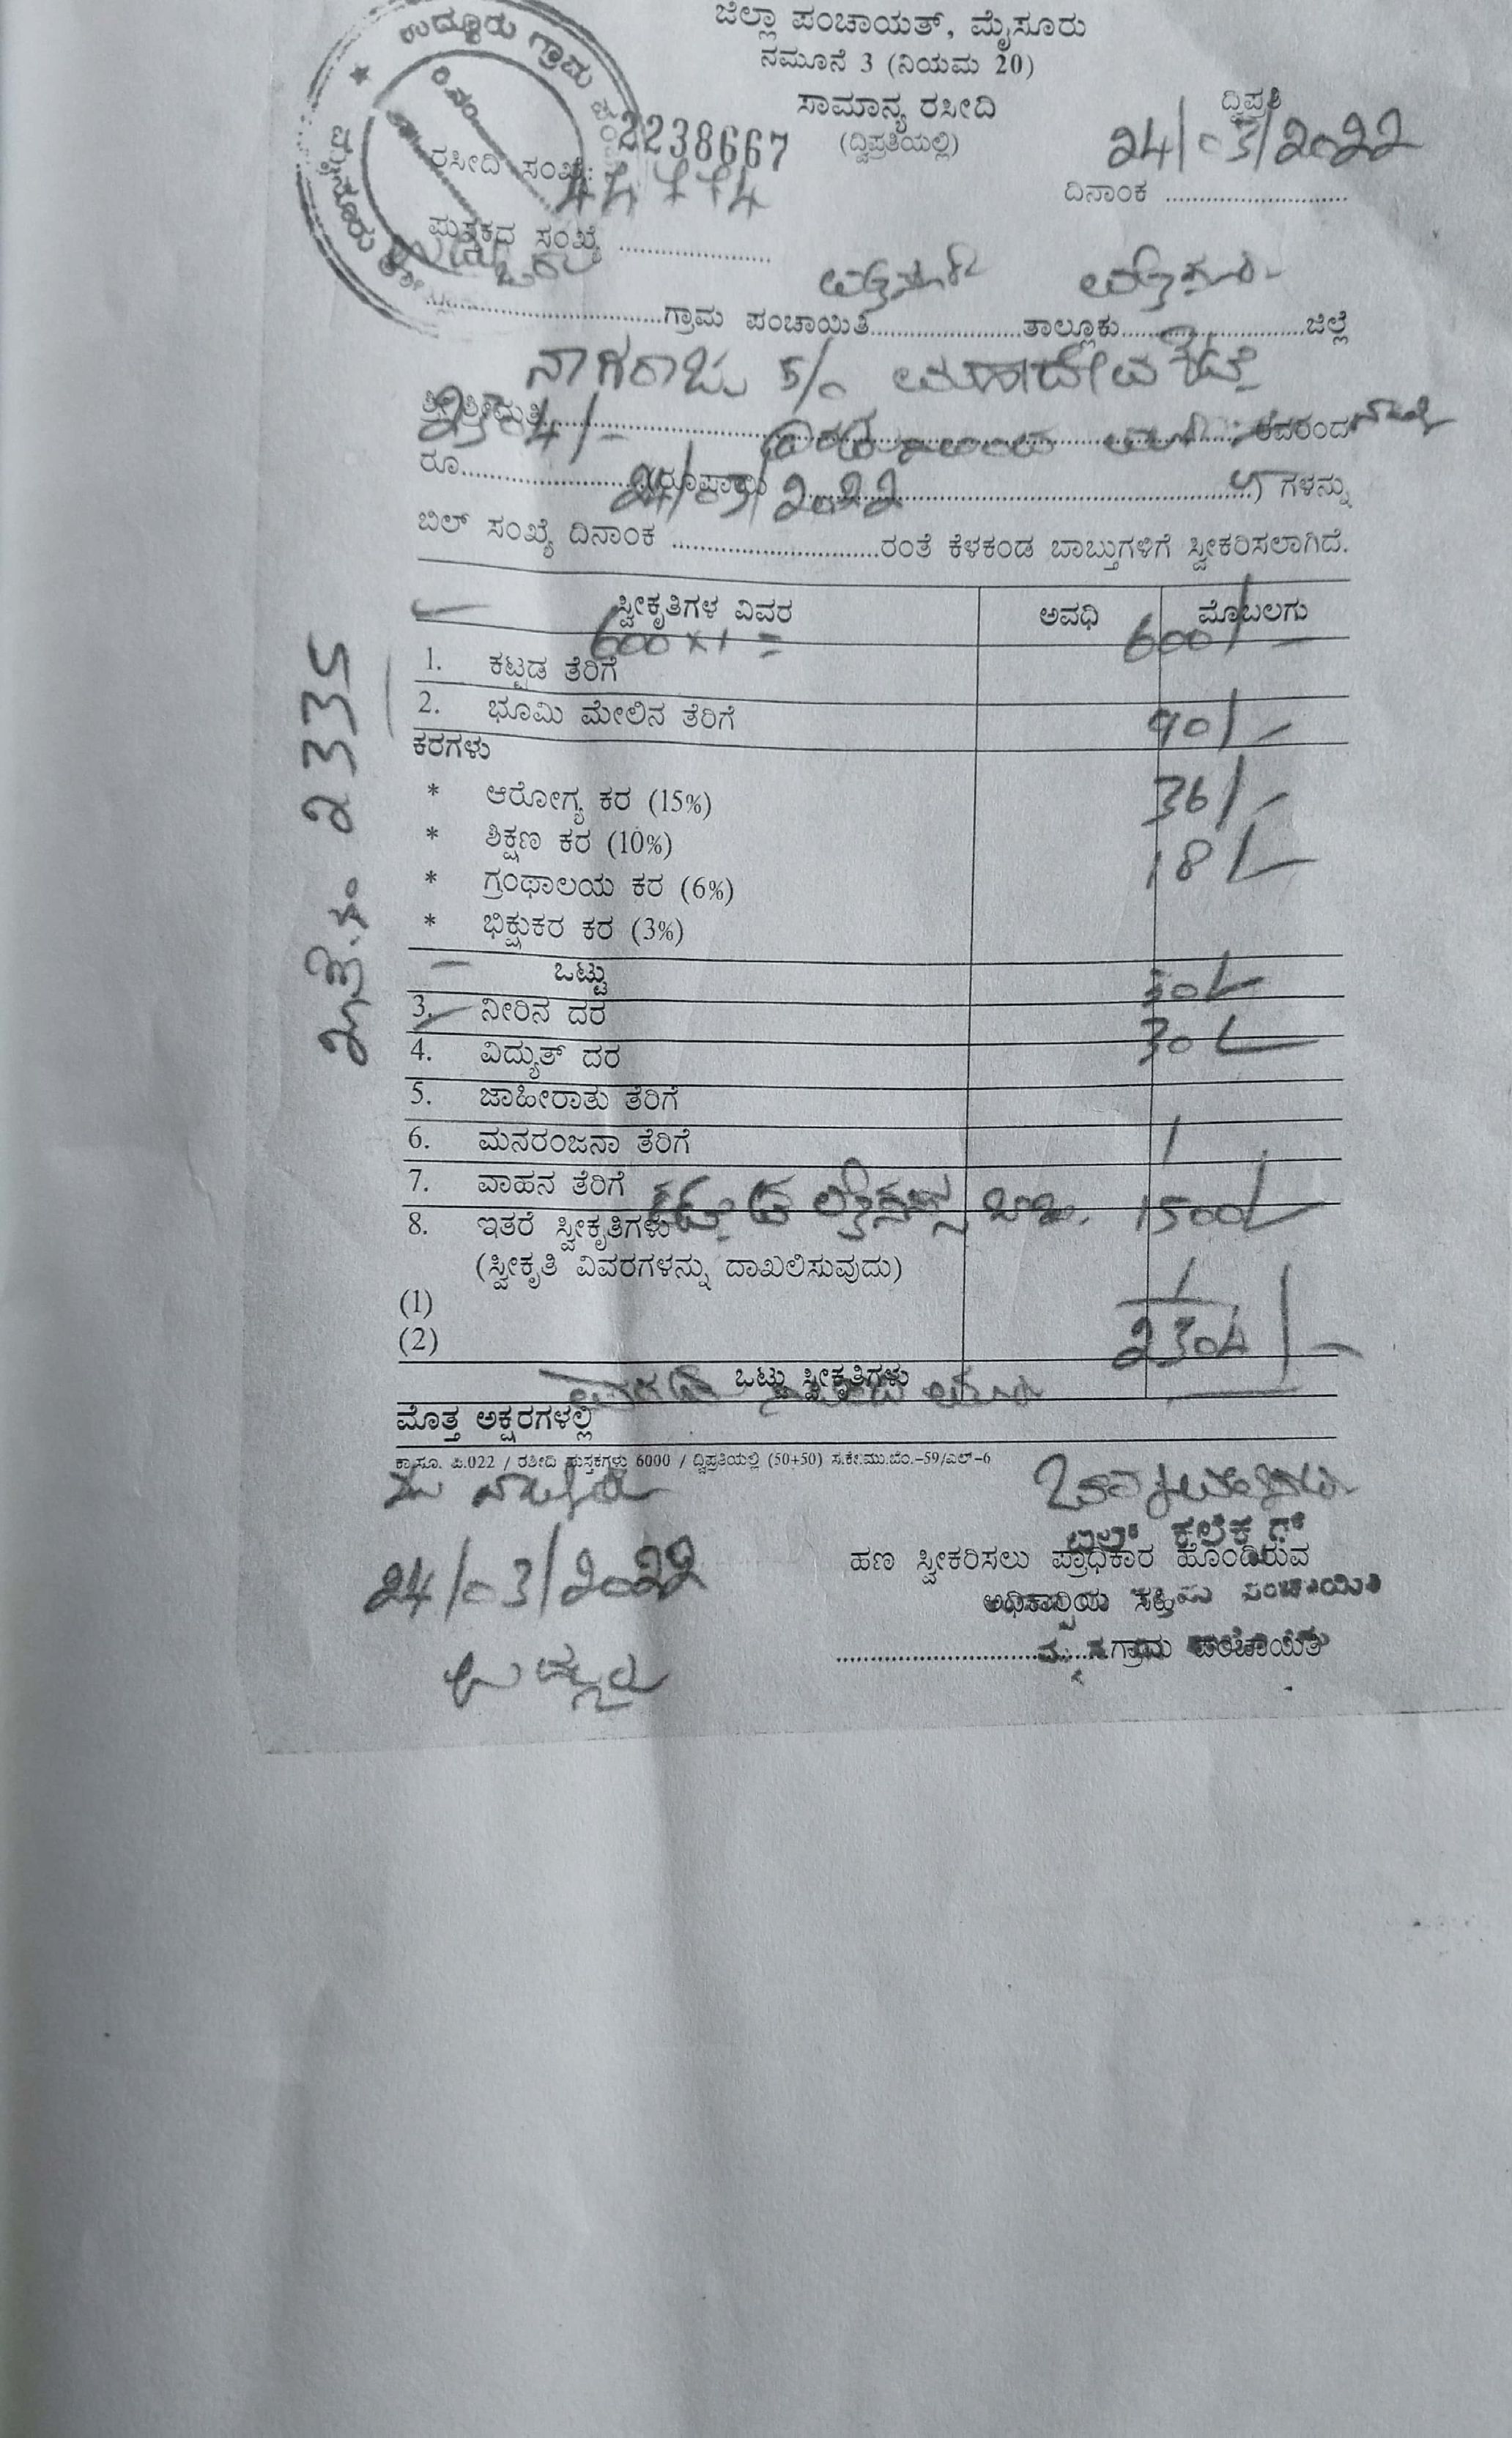 ಉದ್ದೂರು ಗ್ರಾಮ
ಜಿಲ್ಲಾ ಪಂಚಾಯತ್, ಮೈಸೂರು
ನಮೂನೆ 3 (ನಿಯಮ 20)
ಸಾಮಾನ್ಯ ರಸೀದಿ
ದ್ವಿಪ್ರತಿ
(ದ್ವಿಪ್ರತಿಯಲ್ಲಿ)
ರಸೀದಿ ಸಂಖ್ಯೆ: 2238667
24/03/2022
ದಿನಾಂಕ ............................
ಪುಸ್ತಕದ ಸಂಖ್ಯೆ .......................
ಮೈಸೂರು ಮೈಸೂರು
....................................ಗ್ರಾಮ ಪಂಚಾಯಿತಿ.......................ತಾಲ್ಲೂಕು............................ಜಿಲ್ಲೆ
ನಾಗರಾಜು S/o ಮಹಾದೇವಶೆಟ್ಟಿ
ಶ್ರೀ/ಶ್ರೀಮತಿ............................................................ರವರಿಂದ
2304/-
ರೂ............................(ರೂಪಾಯಿ ............................................................) ಗಳನ್ನು
24/03/2022
ಬಿಲ್ ಸಂಖ್ಯೆ ದಿನಾಂಕ ................................ರಂತೆ ಕೆಳಕಂಡ ಬಾಬ್ತುಗಳಿಗೆ ಸ್ವೀಕರಿಸಲಾಗಿದೆ.
ಸ್ವೀಕೃತಿಗಳ ವಿವರ ಅವಧಿ ಮೊಬಲಗು
600 x 1 = 600/-
1. ಕಟ್ಟಡ ತೆರಿಗೆ
2. ಭೂಮಿ ಮೇಲಿನ ತೆರಿಗೆ 90/-
ಕರಗಳು
* ಆರೋಗ್ಯ ಕರ (15%) 36/-
* ಶಿಕ್ಷಣ ಕರ (10%) 18/-
* ಗ್ರಂಥಾಲಯ ಕರ (6%)
* ಭಿಕ್ಷುಕರ ಕರ (3%)
ಒಟ್ಟು 30/-
3. ನೀರಿನ ದರ 30/-
4. ವಿದ್ಯುತ್ ದರ
5. ಜಾಹೀರಾತು ತೆರಿಗೆ
6. ಮನರಂಜನಾ ತೆರಿಗೆ
7. ವಾಹನ ತೆರಿಗೆ
ಕಟ್ಟಡ ಲೈಸೆನ್ಸ್ 1500/-
8. ಇತರೆ ಸ್ವೀಕೃತಿಗಳು
(ಸ್ವೀಕೃತಿ ವಿವರಗಳನ್ನು ದಾಖಲಿಸುವುದು)
(1)
(2) 2304/-
ಒಟ್ಟು ಸ್ವೀಕೃತಿಗಳು
ಮೊತ್ತ ಅಕ್ಷರಗಳಲ್ಲಿ
ಕಾ.ಸೂ. ಪಿ.022 / ರಶೀದಿ ಪುಸ್ತಕಗಳು 6000 / ದ್ವಿಪ್ರತಿಯಲ್ಲಿ (50+50) ಸ.ಕೇ.ಮು.ಬೆಂ.-59/ಎಲ್-6
ಬಿಲ್ ಕಲೆಕ್ಟರ್
ಹಣ ಸ್ವೀಕರಿಸಲು ಪ್ರಾಧಿಕಾರ ಹೊಂದಿರುವ
24/03/2022
ಅಧಿಕಾರಿಯ ಸಹಿ ಪಂಚಾಯಿತಿ
........................................ಗ್ರಾಮ ಪಂಚಾಯಿತಿ
2335